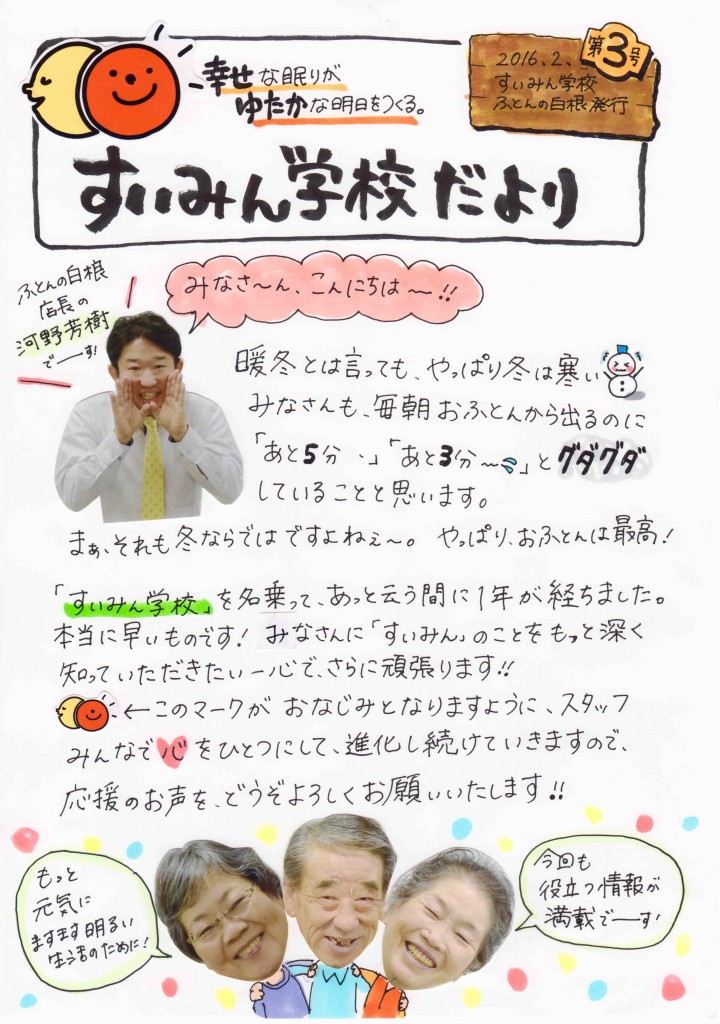 幸せな眠りが
ゆたかな明日をつくる。
第3号
2016.2.
すいみん学校
ふとんの白根発行
すいみん学校だより
ふとんの白根
店長の
河野芳樹
でーす!
みなさ〜ん、こんにちは〜!!
暖冬とは言っても、やっぱり冬は寒い
みなさんも、毎朝おふとんから出るのに
「あと5分 、」「あと3分〜」とグダグダ
していることと思います。
まぁ、それも冬ならではですよねぇ〜。 やっぱり、おふとんは最高!
「すいみん学校」を名乗って、あっと云う間に1年が経ちました。
本当に早いものです! みなさんに「すいみん」のことをもっと深く
知っていただきたい一心で、さらに頑張ります!!
←このマークが おなじみとなりますように、スタッフ
みんなで心をひとつにして、進化し続けていきますので、
応援のお声を、どうぞよろしくお願いいたします!!
もっと
元気に
ますます明るい
生活のために!
今回も
役立つ情報が
満載でーす!